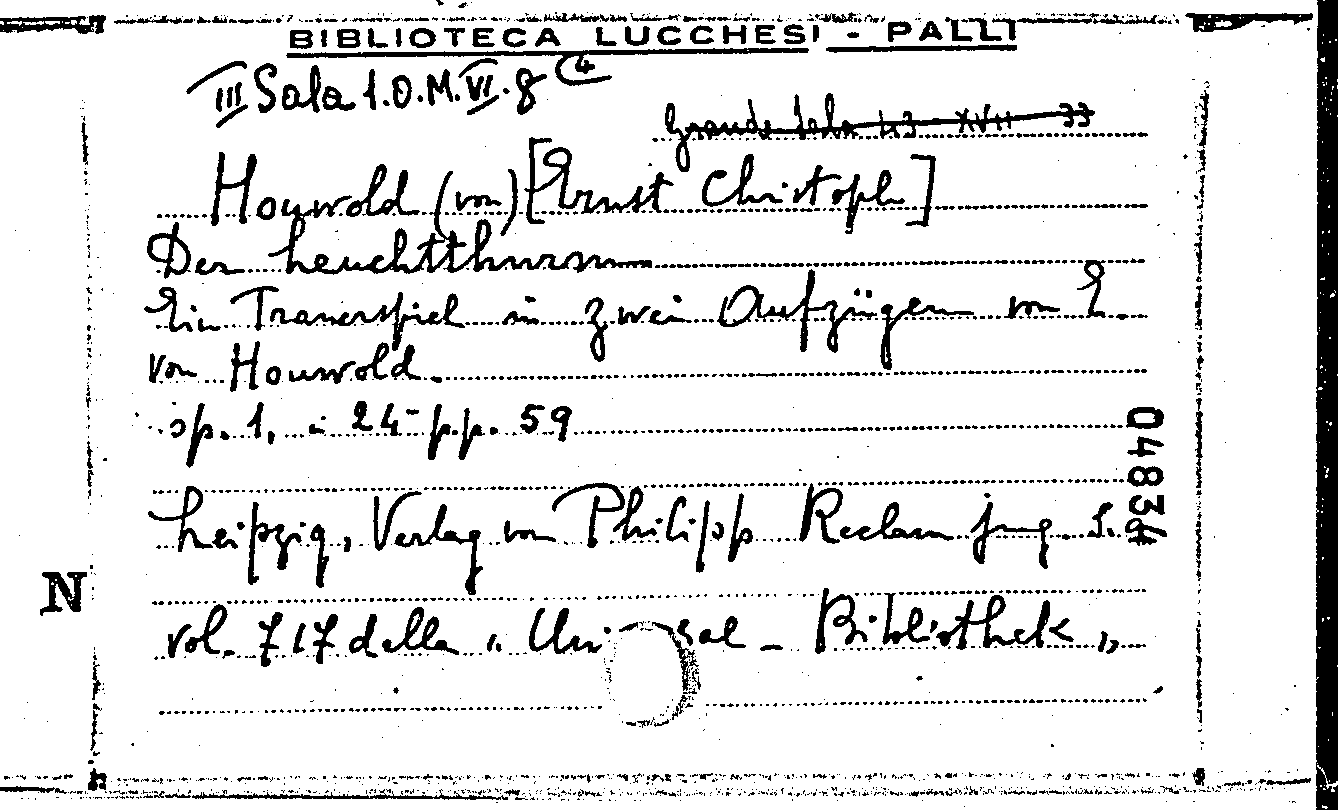 BIBLIOTECA LUCCHESI - PALLI
III Sala 1.O.M.VI.8 (4
Grande Sala 43 - XVII 33
Houwold (von) [Ernst Christoph]
Der Leuchtthurm
Ein Trauerspiel in zwei Aufzügen von E.
von Houwold.
op. 1, in 24- p.p. 59
04834
Leipzig, Verlag von Philipp Reclam jung. S.a
N
vol. 717 della "Uni sal - Bibliothek"